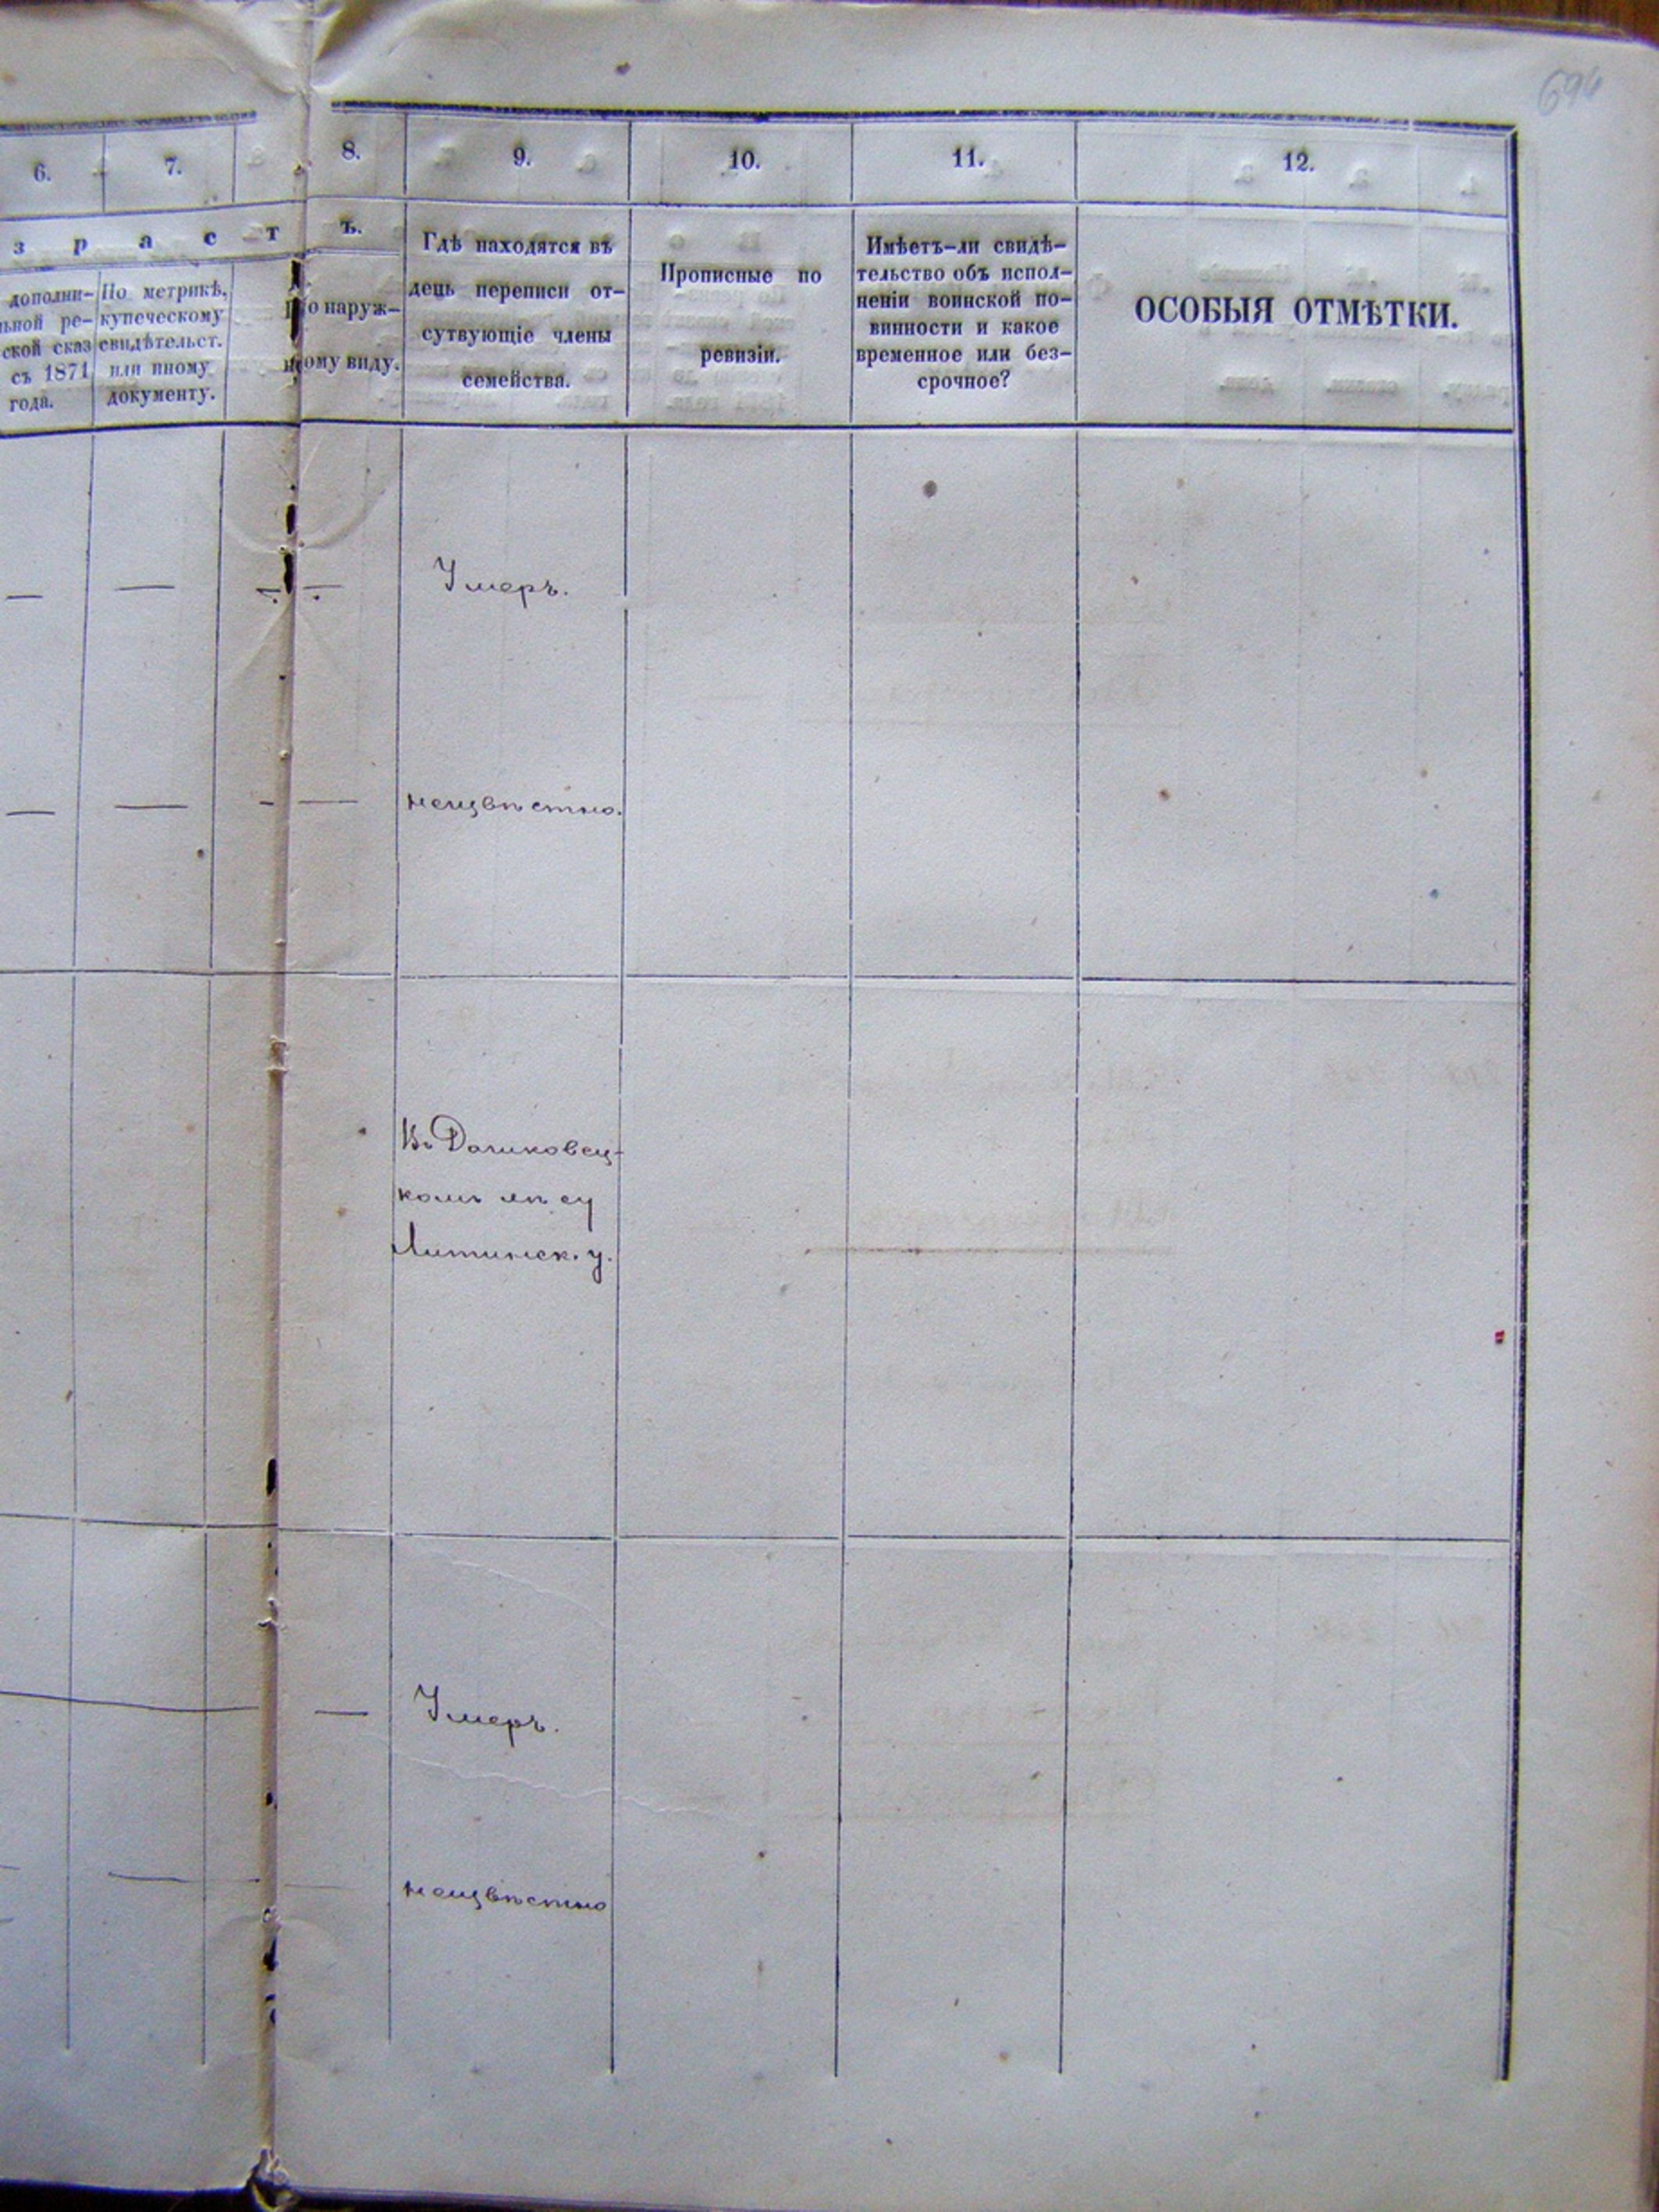 694
6. 7. 8. 9. 10. 11. 12.
з р а с т ъ.
дополни-
ьной ре-
ской сказ
съ 1871
года.
По метрикѣ,
купеческому
свидѣтельст.
или иному
документу.
По наруж-
ному виду.
Гдѣ находятся въ
день переписи от-
сутвующіе члены
семейства.
Прописные по
ревизіи.
Имѣетъ-ли свидѣ-
тельство объ испол-
неніи воинской по-
винности и какое
временное или без-
срочное?
ОСОБЫЯ ОТМѢТКИ.
— — — — Умеръ.
— — — — неизвѣстно.
Въ Дашковец-
комъ лѣсу
Литинск. у.
— — Умеръ.
— — неизвѣстно